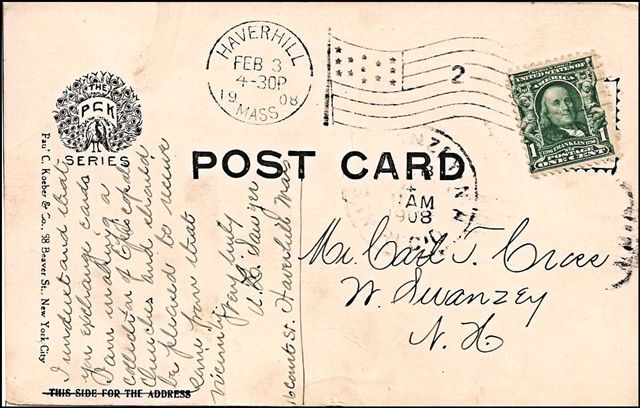 HAVERHILL
FEB 3
4-30P
19 08
MASS.
2
UNITED STATES OF AMERICA
FRANKLIN
1 POSTAGE 1
ONE CENT
THE
PCK
SERIES
POST CARD
4
AM
1908
Paul C. Koeber & Co., 98 Beaver St., New York City
I understand that
you exchange cards
I am making a
collection of Episcopal
Churches and should
be pleased to receive
some from that
vicinity
Very truly
Sawyer
St. Haverhill Mass
Mr. Carl T. Cross
W. Swanzey
N. H.
THIS SIDE FOR THE ADDRESS